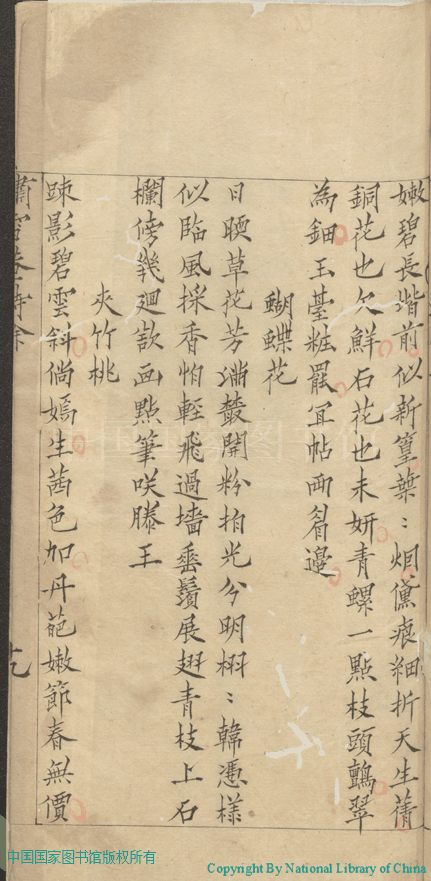 嫩碧長堦前似新篁葉〻烟黛痕細折天生蒨
銅花也欠鮮石花也未妍青螺一點枝頭鸝翠
為鈿玉臺粧罷宜帖兩眉邊
蝴蝶花
日暎草花芳滿叢開粉拍光分明栩〻韓憑樣
似臨風採香怕輕飛過墻垂鬚展翅青枝上石
欄傍幾廻欵画點筆咲滕王
夾竹桃
踈影碧雲斜倘嫣生茜色加丹葩嫩節春無價
九
中国国家图书馆版权所有
Copyright By National Library of China